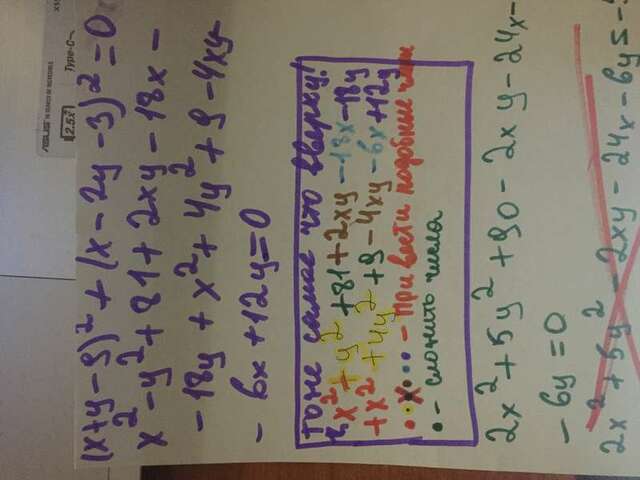 (x+y-9)² + (x-2y-3)² = 0
x² - y² + 81 + 2xy - 18x -
- 18y + x² + 4y² + 9 - 4xy
- 6x + 12y = 0
тоже самое что вверху!
x² + y² + 81 + 2xy - 18x - 18y
+ x² + 4y² + 9 - 4xy - 6x + 12y
- Привести подобные
- сложить числа
2x² + 5y² + 90 - 2xy - 24x -
- 6y = 0
2x² + 5y² - 2xy - 24x - 6y
ASUS
Type-C
2.5"